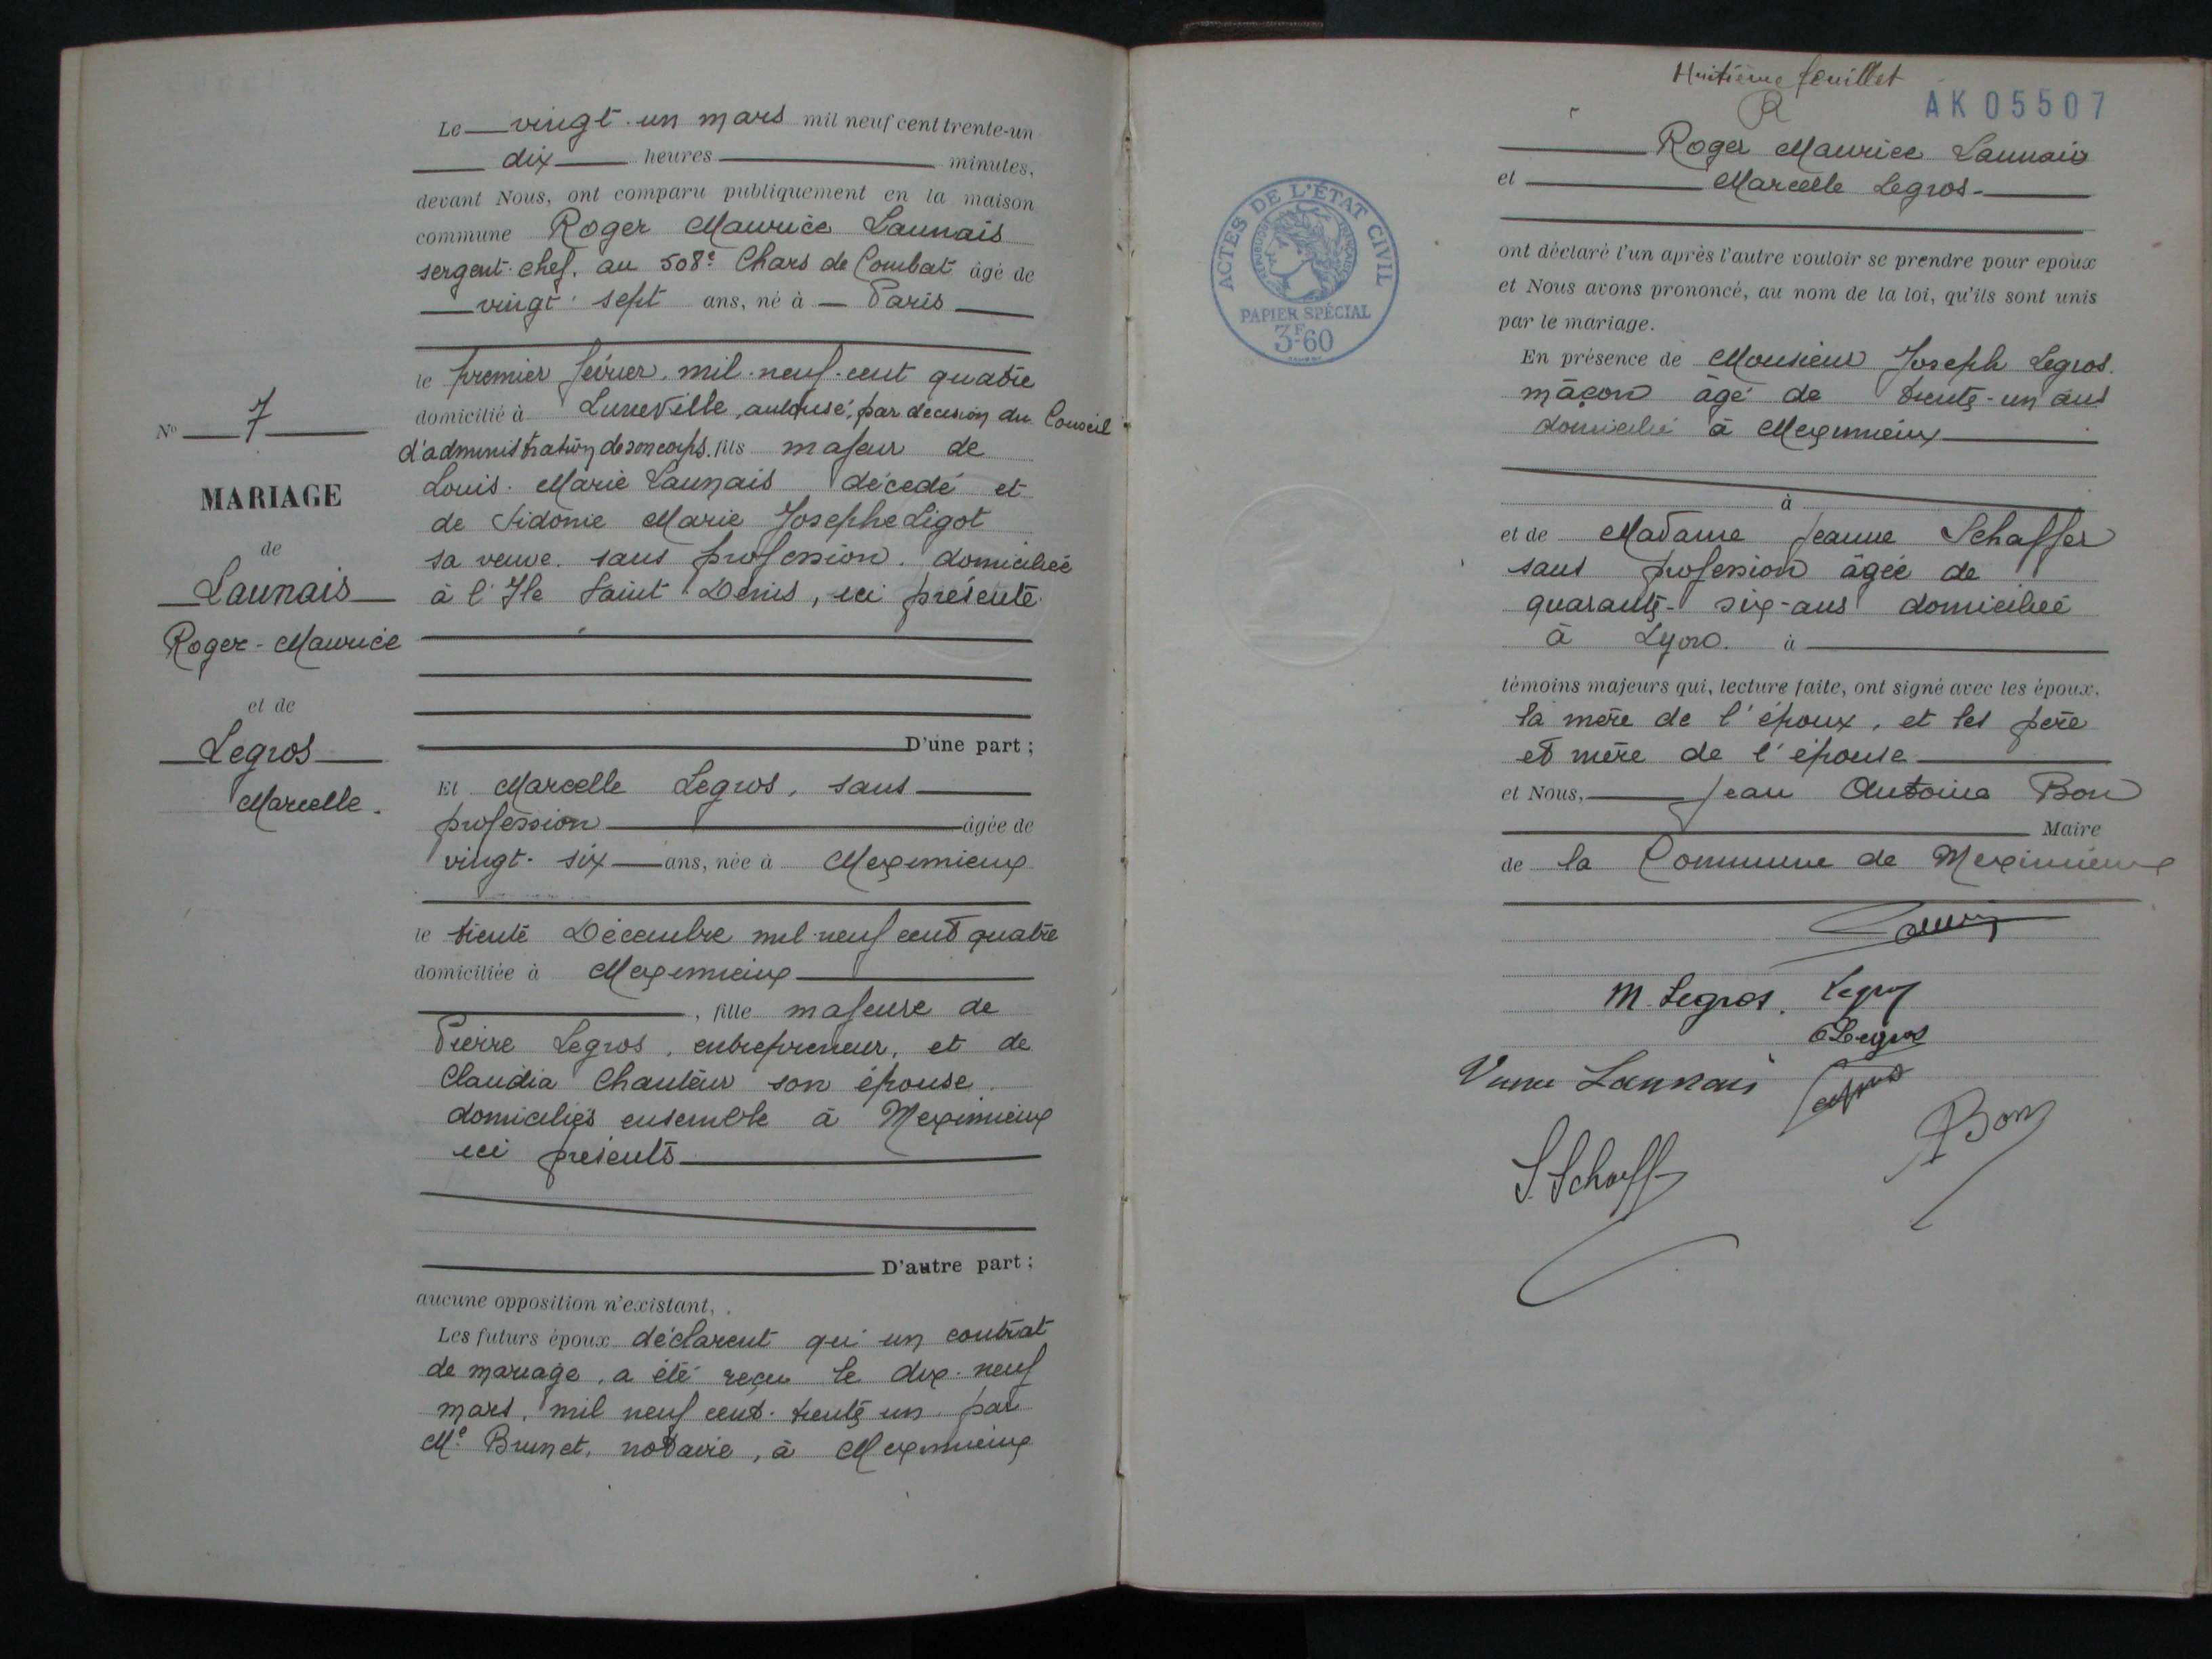 Le vingt-un mars mil neuf cent trente-un
dix heures minutes,
devant Nous, ont comparu publiquement en la maison
commune Roger Maurice Launais
sergent-chef, au 508e Chars de Combat âgé de
vingt-sept ans, né à Paris
le premier février mil-neuf-cent quatre
domicilié à Luneville, autorisé, par decision du Conseil
d'administration de son corps. fils majeur de
Louis-Marie Launais décédé et
de Sidonie Marie Josephe Ligot
sa veuve. sans profession. domiciliée
à l'Ile Saint Denis, ici présente
N° 7
MARIAGE
de
Launais
Roger-Maurice
et de
Legros
Marcelle.
D'une part;
Et Marcelle Legros, sans
profession âgée de
vingt-six ans, née à Meximieux
le trente Décembre mil-neuf cent quatre
domiciliée à Meximieux
, fille majeure de
Pierre Legros, entrepreneur, et de
Claudia Chanteur son épouse.
domiciliés ensemble à Meximieux
ici présents
D'autre part;
aucune opposition n'existant,
Les futurs époux déclarent qu'un contrat
de mariage, a été reçu le dix-neuf
mars, mil neuf cent-trente un par
Me Brunet, notaire, à Meximieux
Huitième feuillet
R
AK05507
ACTES DE L'ÉTAT CIVIL
RÉPUBLIQUE FRANÇAISE
PAPIER SPÉCIAL
3F60
Roger Maurice Launais
et Marcelle Legros
ont déclaré l'un après l'autre vouloir se prendre pour époux
et Nous avons prononcé, au nom de la loi, qu'ils sont unis
par le mariage.
En présence de Monsieur Joseph Legros.
mâçon âgé de trente-un ans
domicilié à Meximieux
à
et de Madame Jeanne Schaffer
sans profession âgée de
quarante-six-ans domiciliée
à Lyon. à
témoins majeurs qui, lecture faite, ont signé avec les époux,
la mère de l'époux, et les père
et mère de l'épouse
et Nous, Jean Antoine Bon
Maire
de la Commune de Meximieux
M. Legros. Legros
CLegros
Veuve Launais
Bon
J. Schaff